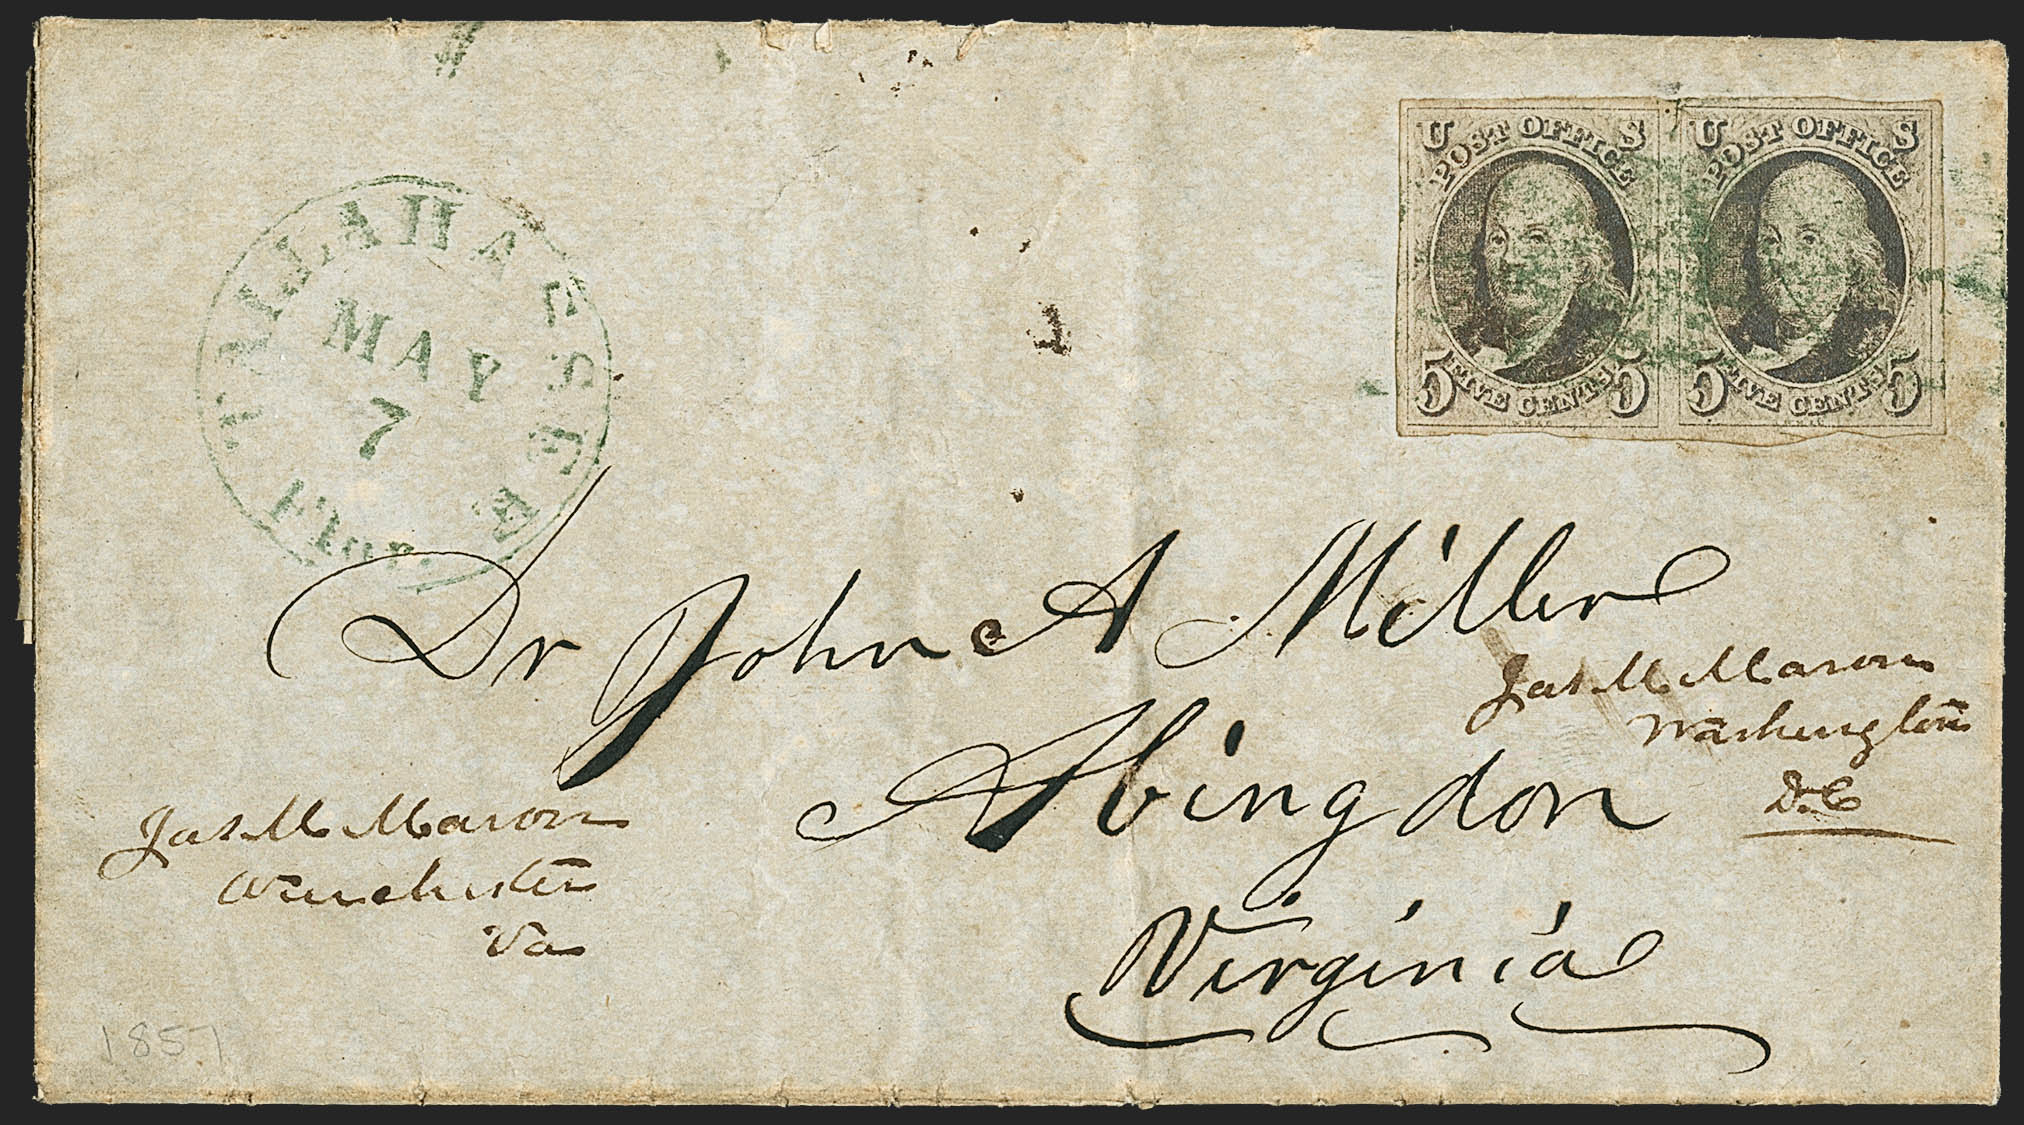 TALLAHASSEE
MAY
7
Flor.
U S
POST OFFICE
5 5
FIVE CENTS
U S
POST OFFICE
5 5
FIVE CENTS
Dr John A Miller
Abingdon
Virginia
Jas M Mason
Washington
D.C
Jas M Mason
Winchester
Va
1851